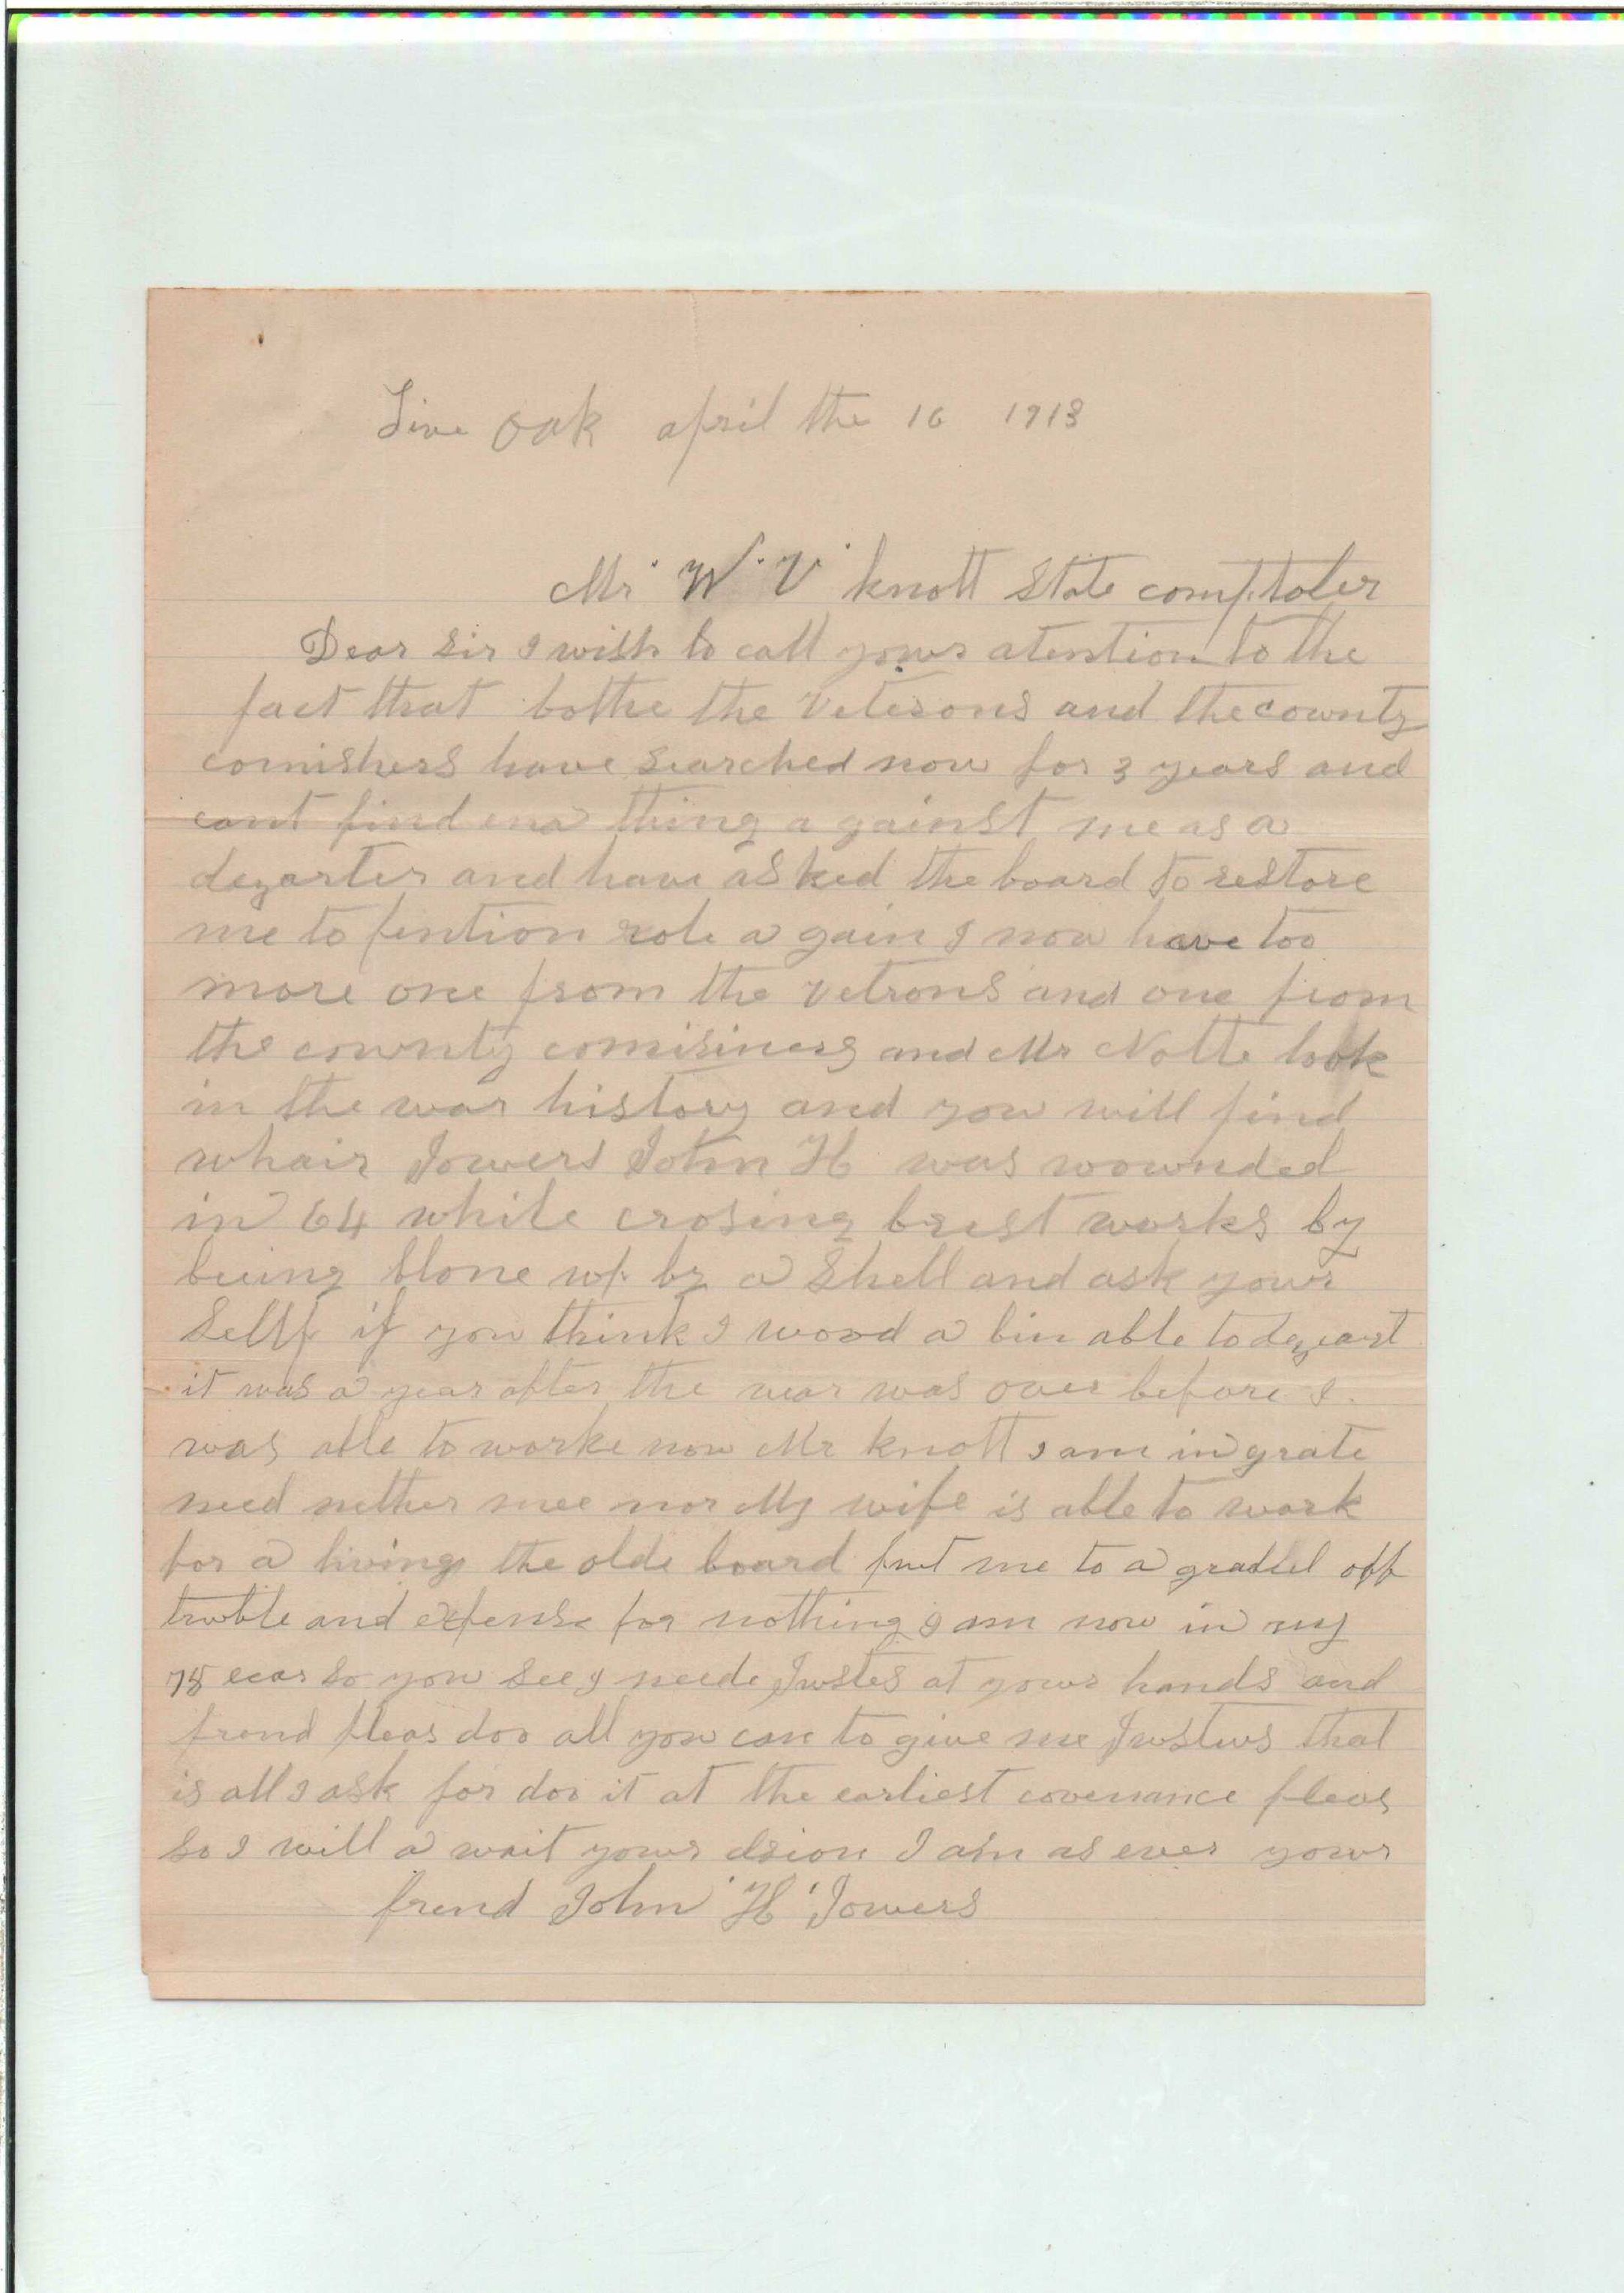 Live Oak april the 16 1913
Mr W. V. knott State comptoler
Dear Sir I wish to call your atention to the
fact that bothe the Veterons and the county
comishers have searched now for 3 years and
cant find ena thing a gainst me as a
dezarter and have asked the board to restore
me to pention role a gain I now have too
more one from the vetrons and one from
the county comisiners and Mr Notte look
in the war history and you will find
whair Jowers John H was wounded
in 64 while crosing brest works by
being blone up by a Shell and ask your
Sellf if you think I wood a bin able to dezart
it was a year after the wear was over before I
was able to worke now Mr knott I am in grate
need nether mee nor My wife is able to work
for a living the olde board put me to a gradeel off
truble and expense for nothing I am now in my
78 ear so you see I neede Justes at your hands and
frend pleas doo all you can to give me Justus that
is all I ask for doo it at the earliest covenance pleas
so I will a wait your dsion I am as ever your
frend John H Jowers